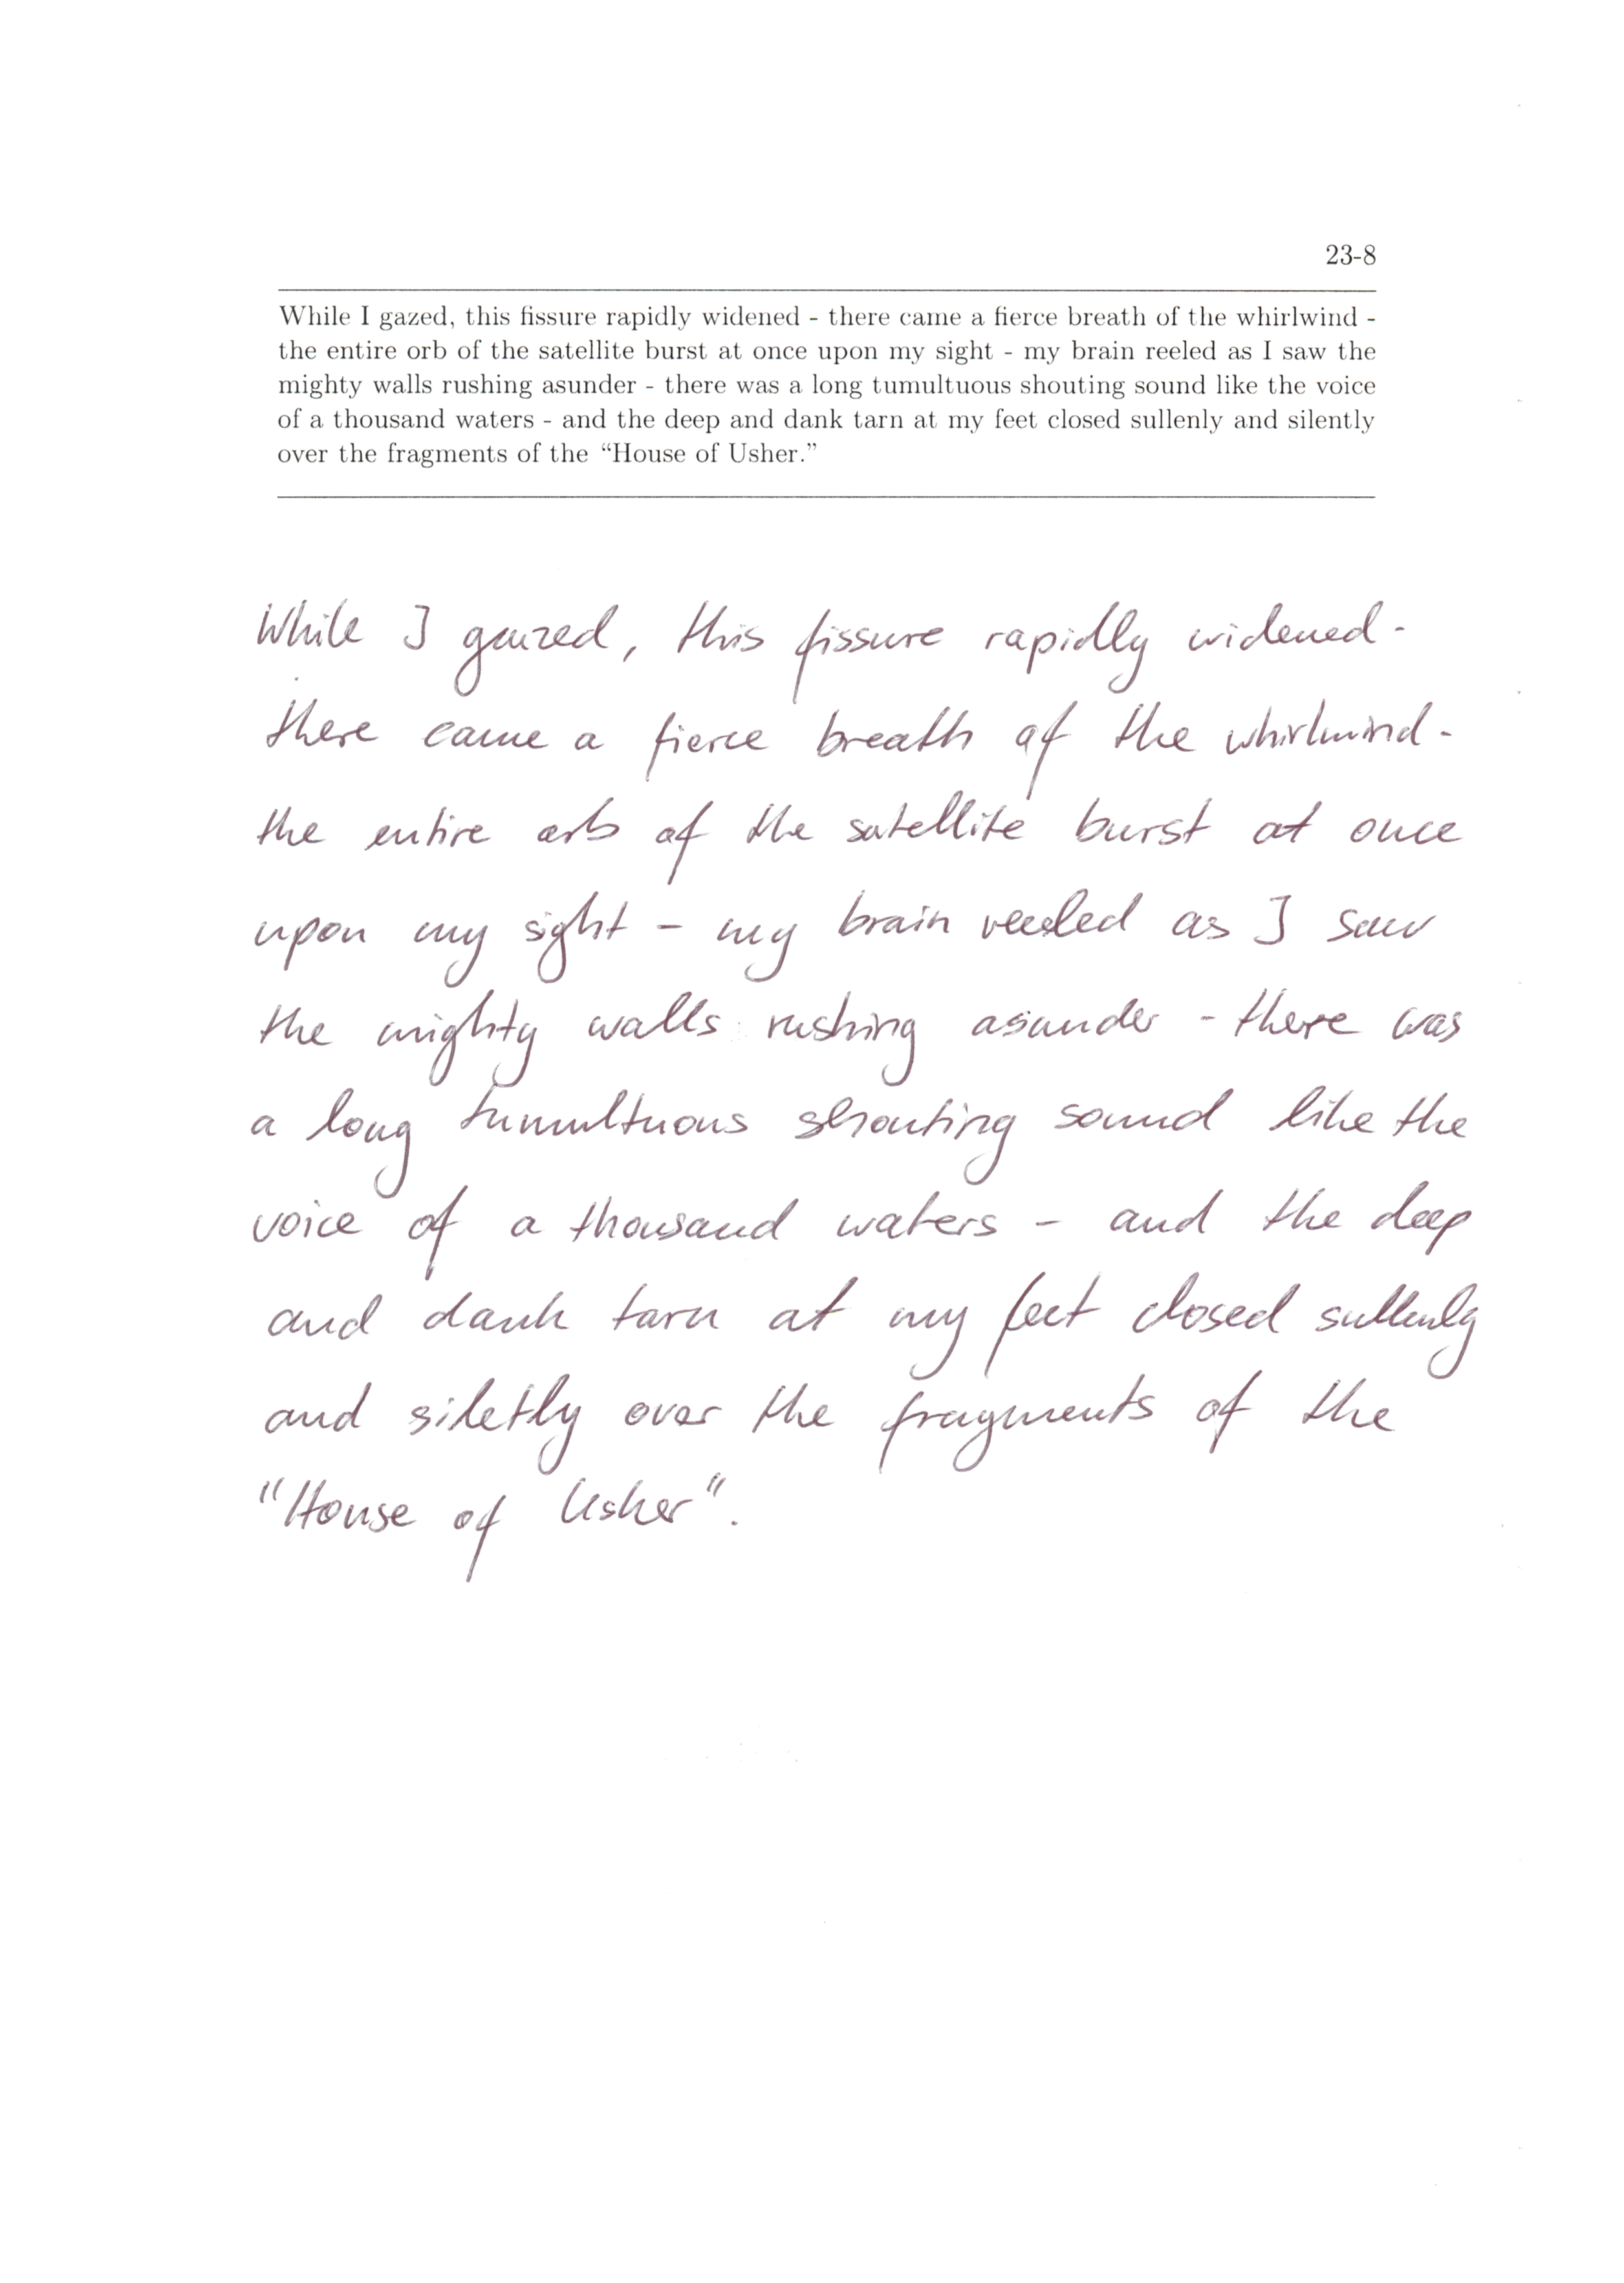 23-8
While I gazed, this fissure rapidly widened - there came a fierce breath of the whirlwind -
the entire orb of the satellite burst at once upon my sight - my brain reeled as I saw the
mighty walls rushing asunder - there was a long tumultuous shouting sound like the voice
of a thousand waters - and the deep and dank tarn at my feet closed sullenly and silently
over the fragments of the “House of Usher.”
While I gazed, this fissure rapidly widened -
there came a fierce breath of the whirlwind -
the entire orb of the satellite burst at once
upon my sight - my brain reeled as I saw
the mighty walls rushing asunder - there was
a long tumultuous shouting sound like the
voice of a thousand waters - and the deep
and dank tarn at my feet closed sullenly
and siletly over the fragments of the
"House of Usher".